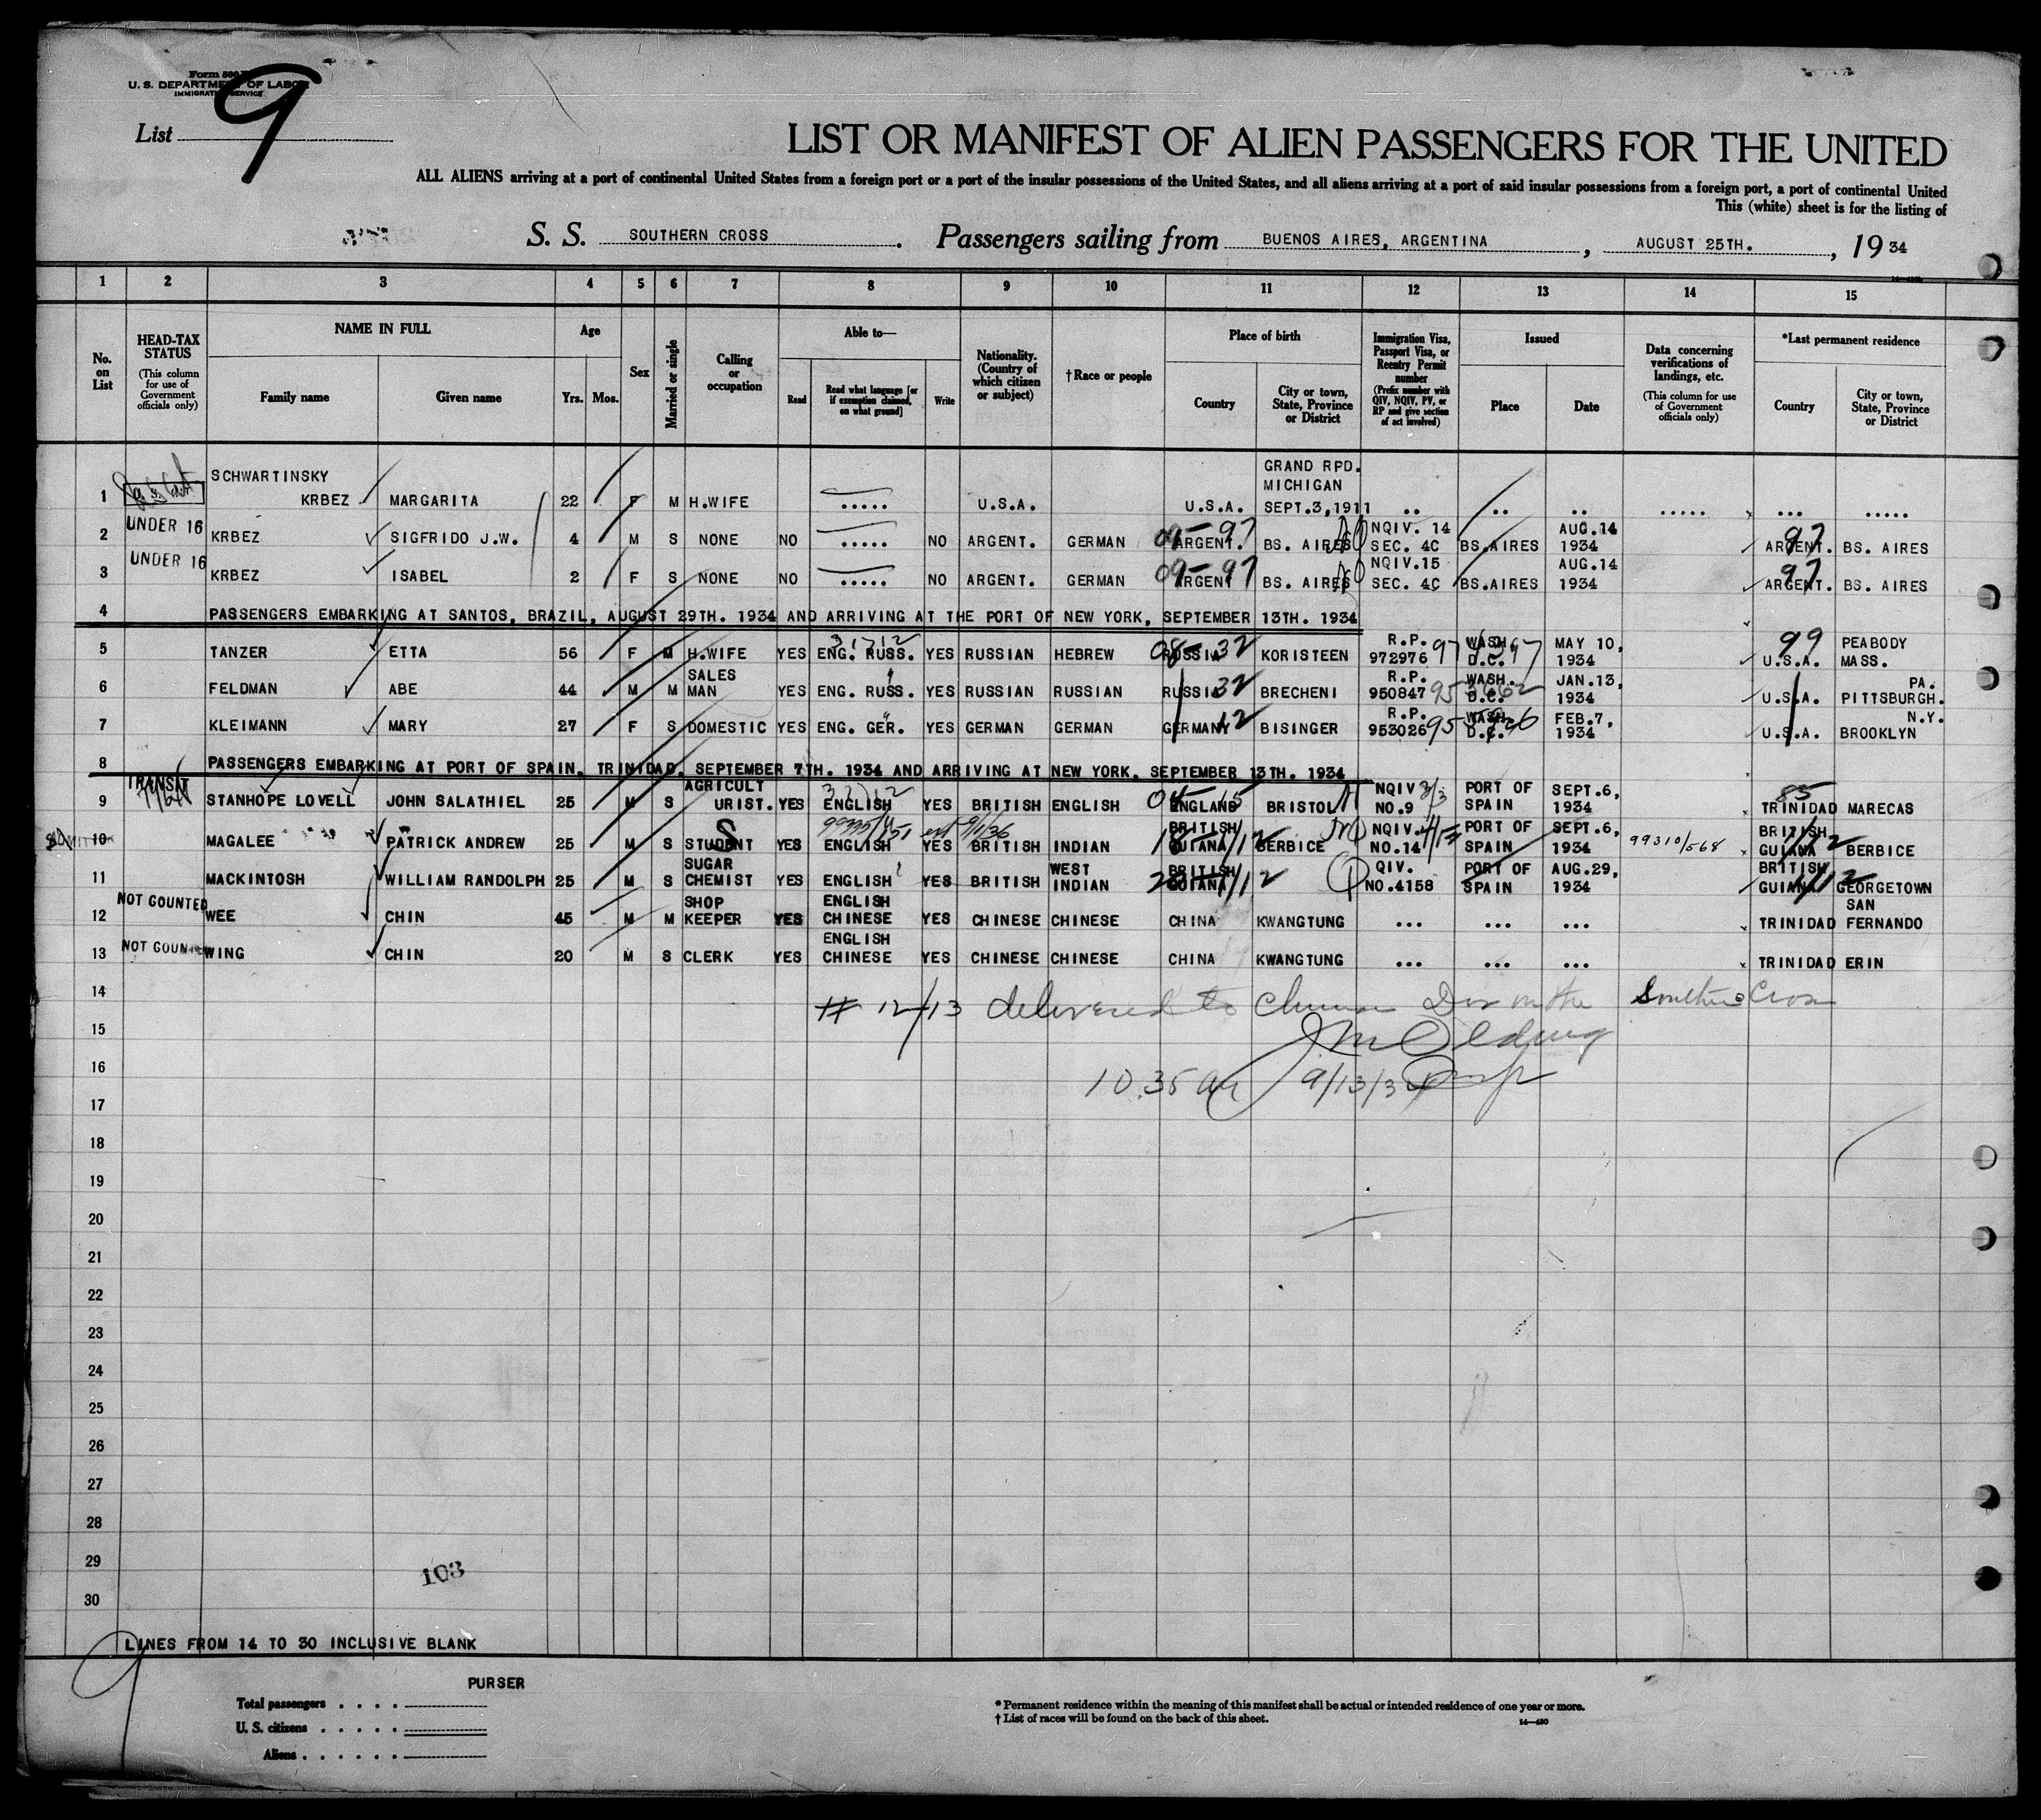 Form 500
U. S. DEPARTMENT OF LABOR
IMMIGRATION SERVICE
List 9
LIST OR MANIFEST OF ALIEN PASSENGERS FOR THE UNITED
ALL ALIENS arriving at a port of continental United States from a foreign port or a port of the insular possessions of the United States, and all aliens arriving at a port of said insular possessions from a foreign port, a port of continental United
This (white) sheet is for the listing of
S. S. SOUTHERN CROSS . Passengers sailing from BUENOS AIRES, ARGENTINA , AUGUST 25TH. , 19 34
1 2 3 4 5 6 7 8 9 10 11 12 13 14 15
No. on List
HEAD-TAX STATUS (This column for use of Government officials only)
NAME IN FULL
Family name Given name
Age
Yrs. Mos.
Sex
Married or single
Calling or occupation
Able to—
Read Read what language [or if exemption claimed, on what ground] Write
Nationality. (Country of which citizen or subject)
†Race or people
Place of birth
Country City or town, State, Province or District
Immigration Visa, Passport Visa, or Reentry Permit number (Prefix number with QIV, NQIV, PV, or RP and give section of act involved)
Issued
Place Date
Data concerning verifications of landings, etc. (This column for use of Government officials only)
*Last permanent residence
Country City or town, State, Province or District
1 SCHWARTINSKY KRBEZ MARGARITA 22 F M H.WIFE ..... U.S.A. U.S.A. GRAND RPD. MICHIGAN SEPT.3,1911 .. .. .. ..... ... .....
UNDER 16
2 KRBEZ SIGFRIDO J.W. 4 M S NONE NO ..... NO ARGENT. GERMAN 09-97 ARGENT. BS. AIRES NQIV. 14 SEC. 4C BS.AIRES AUG.14 1934 97 ARGENT. BS. AIRES
UNDER 16
3 KRBEZ ISABEL 2 F S NONE NO ..... NO ARGENT. GERMAN 09-97 ARGENT BS. AIRES NQIV.15 SEC. 4C BS.AIRES AUG.14 1934 97 ARGENT. BS. AIRES
4 PASSENGERS EMBARKING AT SANTOS, BRAZIL, AUGUST 29TH. 1934 AND ARRIVING AT THE PORT OF NEW YORK, SEPTEMBER 13TH. 1934
5 TANZER ETTA 56 F M H.WIFE YES ENG. RUSS. YES RUSSIAN HEBREW 08-32 RUSSIA KORISTEEN R.P. 972976 WASH. D.C. MAY 10, 1934 99 U.S.A. PEABODY MASS.
6 FELDMAN ABE 44 M M SALES MAN YES ENG. RUSS. YES RUSSIAN RUSSIAN RUSSIA 32 BRECHENI R.P. 950847 WASH. D.C. JAN.13, 1934 U.S.A. PA. PITTSBURGH.
7 KLEIMANN MARY 27 F S DOMESTIC YES ENG. GER. YES GERMAN GERMAN GERMANY 12 BISINGER R.P. 953026 WASH. D.C. FEB.7, 1934 U.S.A. N.Y. BROOKLYN
8 PASSENGERS EMBARKING AT PORT OF SPAIN, TRINIDAD, SEPTEMBER 7TH. 1934 AND ARRIVING AT NEW YORK, SEPTEMBER 13TH. 1934
TRANSIT
9 STANHOPE LOVELL JOHN SALATHIEL 25 M S AGRICULT URIST. YES ENGLISH YES BRITISH ENGLISH ENGLAND BRISTOL NQIV 3/3 NO.9 PORT OF SPAIN SEPT.6, 1934 85 TRINIDAD MARECAS
10 MAGALEE PATRICK ANDREW 25 M S STUDENT YES ENGLISH YES BRITISH INDIAN BRITISH GUIANA BERBICE NQIV. NO.14 PORT OF SPAIN SEPT.6, 1934 99310/568 BRITISH GUIANA BERBICE
11 MACKINTOSH WILLIAM RANDOLPH 25 M S SUGAR CHEMIST YES ENGLISH YES BRITISH WEST INDIAN BRITISH GUIANA QIV. NO.4158 PORT OF SPAIN AUG.29, 1934 BRITISH GUIANA GEORGETOWN
NOT COUNTED
12 WEE CHIN 45 M M SHOP KEEPER YES ENGLISH CHINESE YES CHINESE CHINESE CHINA KWANGTUNG ... ... ... TRINIDAD SAN FERNANDO
NOT COUNTED
13 WING CHIN 20 M S CLERK YES ENGLISH CHINESE YES CHINESE CHINESE CHINA KWANGTUNG ... ... ... TRINIDAD ERIN
14
# 12/13 delivered to Chinese Div on the Southern Cross
15
16
10.35 am 9/13/34
17
18
19
20
21
22
23
24
25
26
27
28
29
103
30
LINES FROM 14 TO 30 INCLUSIVE BLANK
9
PURSER
Total passengers . . . .
U. S. citizens . . . . .
Aliens . . . . . .
* Permanent residence within the meaning of this manifest shall be actual or intended residence of one year or more.
† List of races will be found on the back of this sheet.
14—430